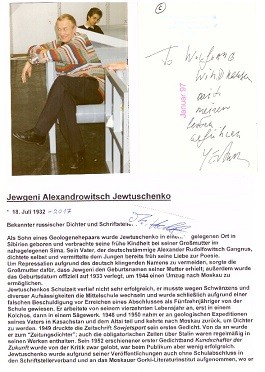 To Wolfgang
mit
meinen
Januar 97
Jewgeni Alexandrowitsch Jewtuschenko
* 18. Juli 1932 - 2017
Bekannter russischer Dichter und Schriftsteller
Als Sohn eines Geologenehepaars wurde Jewtuschenko in einem gelegenen Ort in
Sibirien geboren und verbrachte seine frühe Kindheit bei seiner Großmutter im
nahegelegenen Sima. Sein Vater, der deutschstämmige Alexander Rudolfowitsch Gangnus,
dichtete selbst und vermittelte dem Jungen bereits früh seine Liebe zur Poesie.
Um Repressalien aufgrund des deutsch klingenden Namens zu vermeiden, sorgte die
Großmutter dafür, dass Jewgeni den Geburtsnamen seiner Mutter erhielt; außerdem wurde
das Geburtsdatum offiziell auf 1933 verlegt, um 1944 einen Umzug nach Moskau zu
ermöglichen.
Jewtuschenkos Schulzeit verlief nicht sehr erfolgreich, er musste wegen Schwänzens und
diverser Aufsässigkeiten die Mittelschule wechseln und wurde schließlich aufgrund einer
falschen Beschuldigung vor Erreichen eines Abschlusses als Fünfzehnjähriger von der
Schule gewiesen. Er arbeitete von seinem vierzehnten Lebensjahr an, erst in einem
Kolchos, dann in einem Sägewerk. 1948 und 1950 nahm er an geologischen Expeditionen
seines Vaters in Kasachstan und dem Altai teil und kehrte nach Moskau zurück, um Dichter
zu werden. 1949 druckte die Zeitschrift Sowjetsport sein erstes Gedicht. Von da an wurde
er zum "Zeitungsdichter", auch die obligatorischen Zeilen über Stalin waren regelmäßig in
seinen Werken enthalten. Sein 1952 erschienener erster Gedichtband Kundschafter der
Zukunft wurde von der Kritik zwar gelobt, war beim Publikum aber wenig erfolgreich.
Jewtuschenko wurde aufgrund seiner Veröffentlichungen auch ohne Schulabschluss in
den Schriftstellerverband und an das Moskauer Gorki-Literaturinstitut aufgenommen, wo er